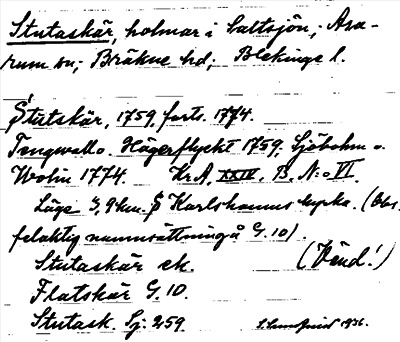 Stutaskär, holmar i Saltsjön; Asa-
rum sn; Bräkne hd; Blekinge l.
Stutskär, 1759, forts. 1774.
Tengwall o. Hägerflycht 1759, Sjöbohm o.
Wolin 1774. Kr. A. XXIV, B. N:o VI
Läge 3,9 km. S Karlshamns kyrka. (Obs.
felaktig namnsättning å G. 10).
Stutaskär ek. (Vänd!)
Flatskär G. 10.
Stutask. Sj. 259. 1936.